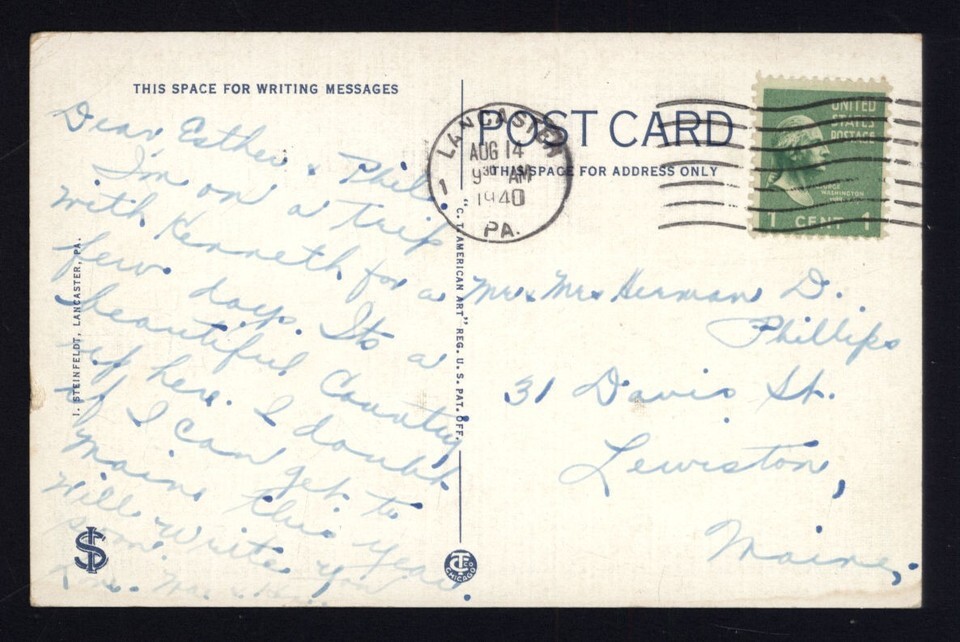 THIS SPACE FOR WRITING MESSAGES
Dear Esther & Phil.
I'm on a trip
with Kenneth for a
few days. Its a
beautiful Country
up here. I doubt
if I can get to
Maine this year.
Will write you
soon.
I. STEINFELDT, LANCASTER, PA.
"C. T. AMERICAN ART" REG. U. S. PAT. OFF.
C.T. CO CHICAGO
POST CARD
THIS SPACE FOR ADDRESS ONLY
LANCASTER
AUG 14
9 30 AM
1940
PA.
1
UNITED
STATES
POSTAGE
GEORGE
WASHINGTON
1 CENT 1
Mr & Mrs Herman D.
Phillips
31 Davis St.
Lewiston,
Maine.